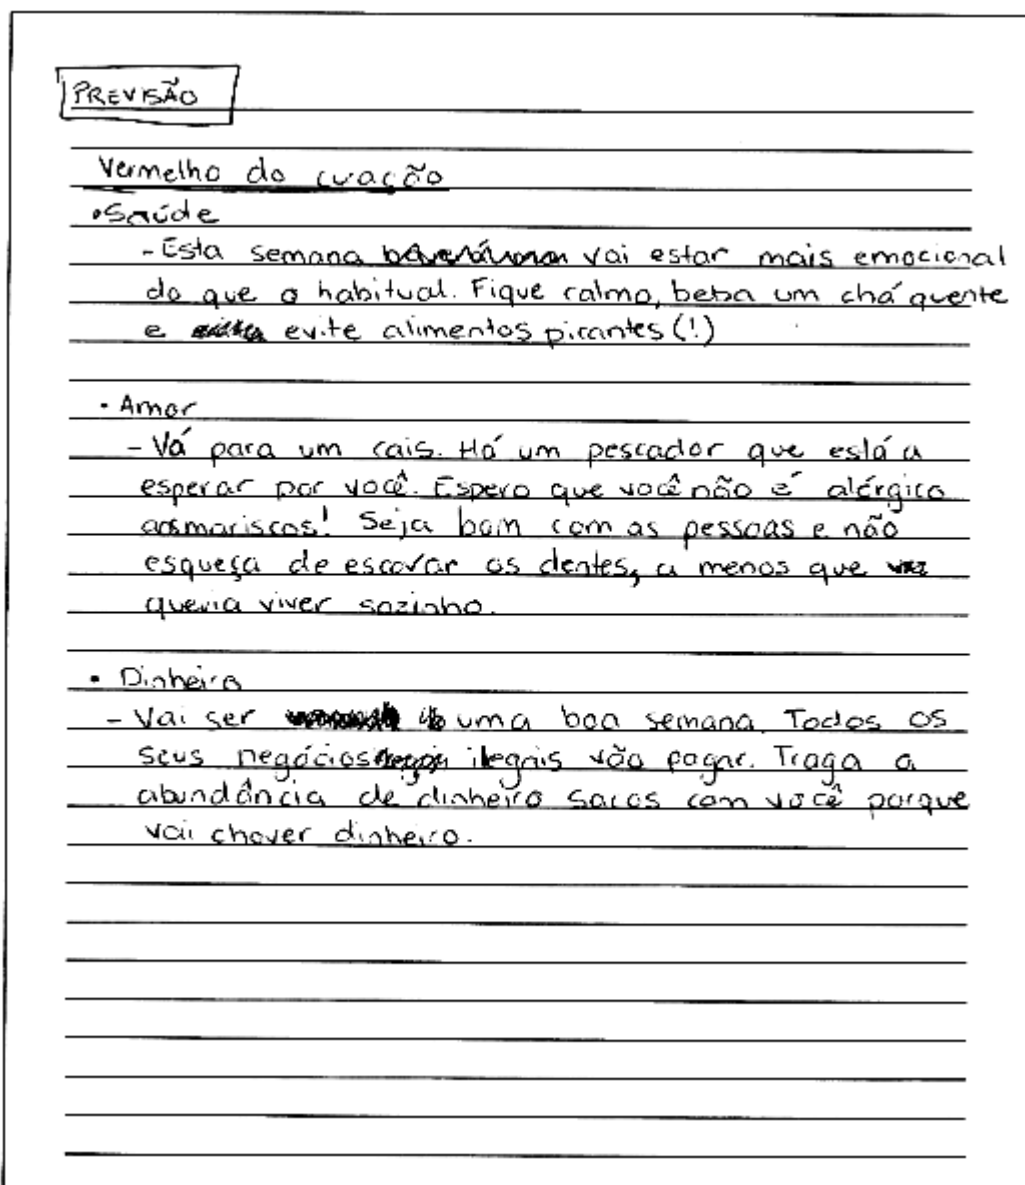 PREVISÃO
Vermelho do cuação
•Saúde
-Esta semana vai estar mais emocional
do que o habitual. Fique calmo, beba um chá quente
e evite alimentos picantes (!)
• Amor
- Vá para um cais. Há um pescador que está a
esperar por você. Espero que você não é alérgico
aos mariscos! Seja bom com as pessoas e não
esqueça de escovar os dentes, a menos que
queria viver sozinho.
• Dinheiro
- Vai ser uma boa semana. Todos os
seus negócios ilegais vão pagar. Traga a
abundância de dinheiro sacos com você porque
vai chover dinheiro.